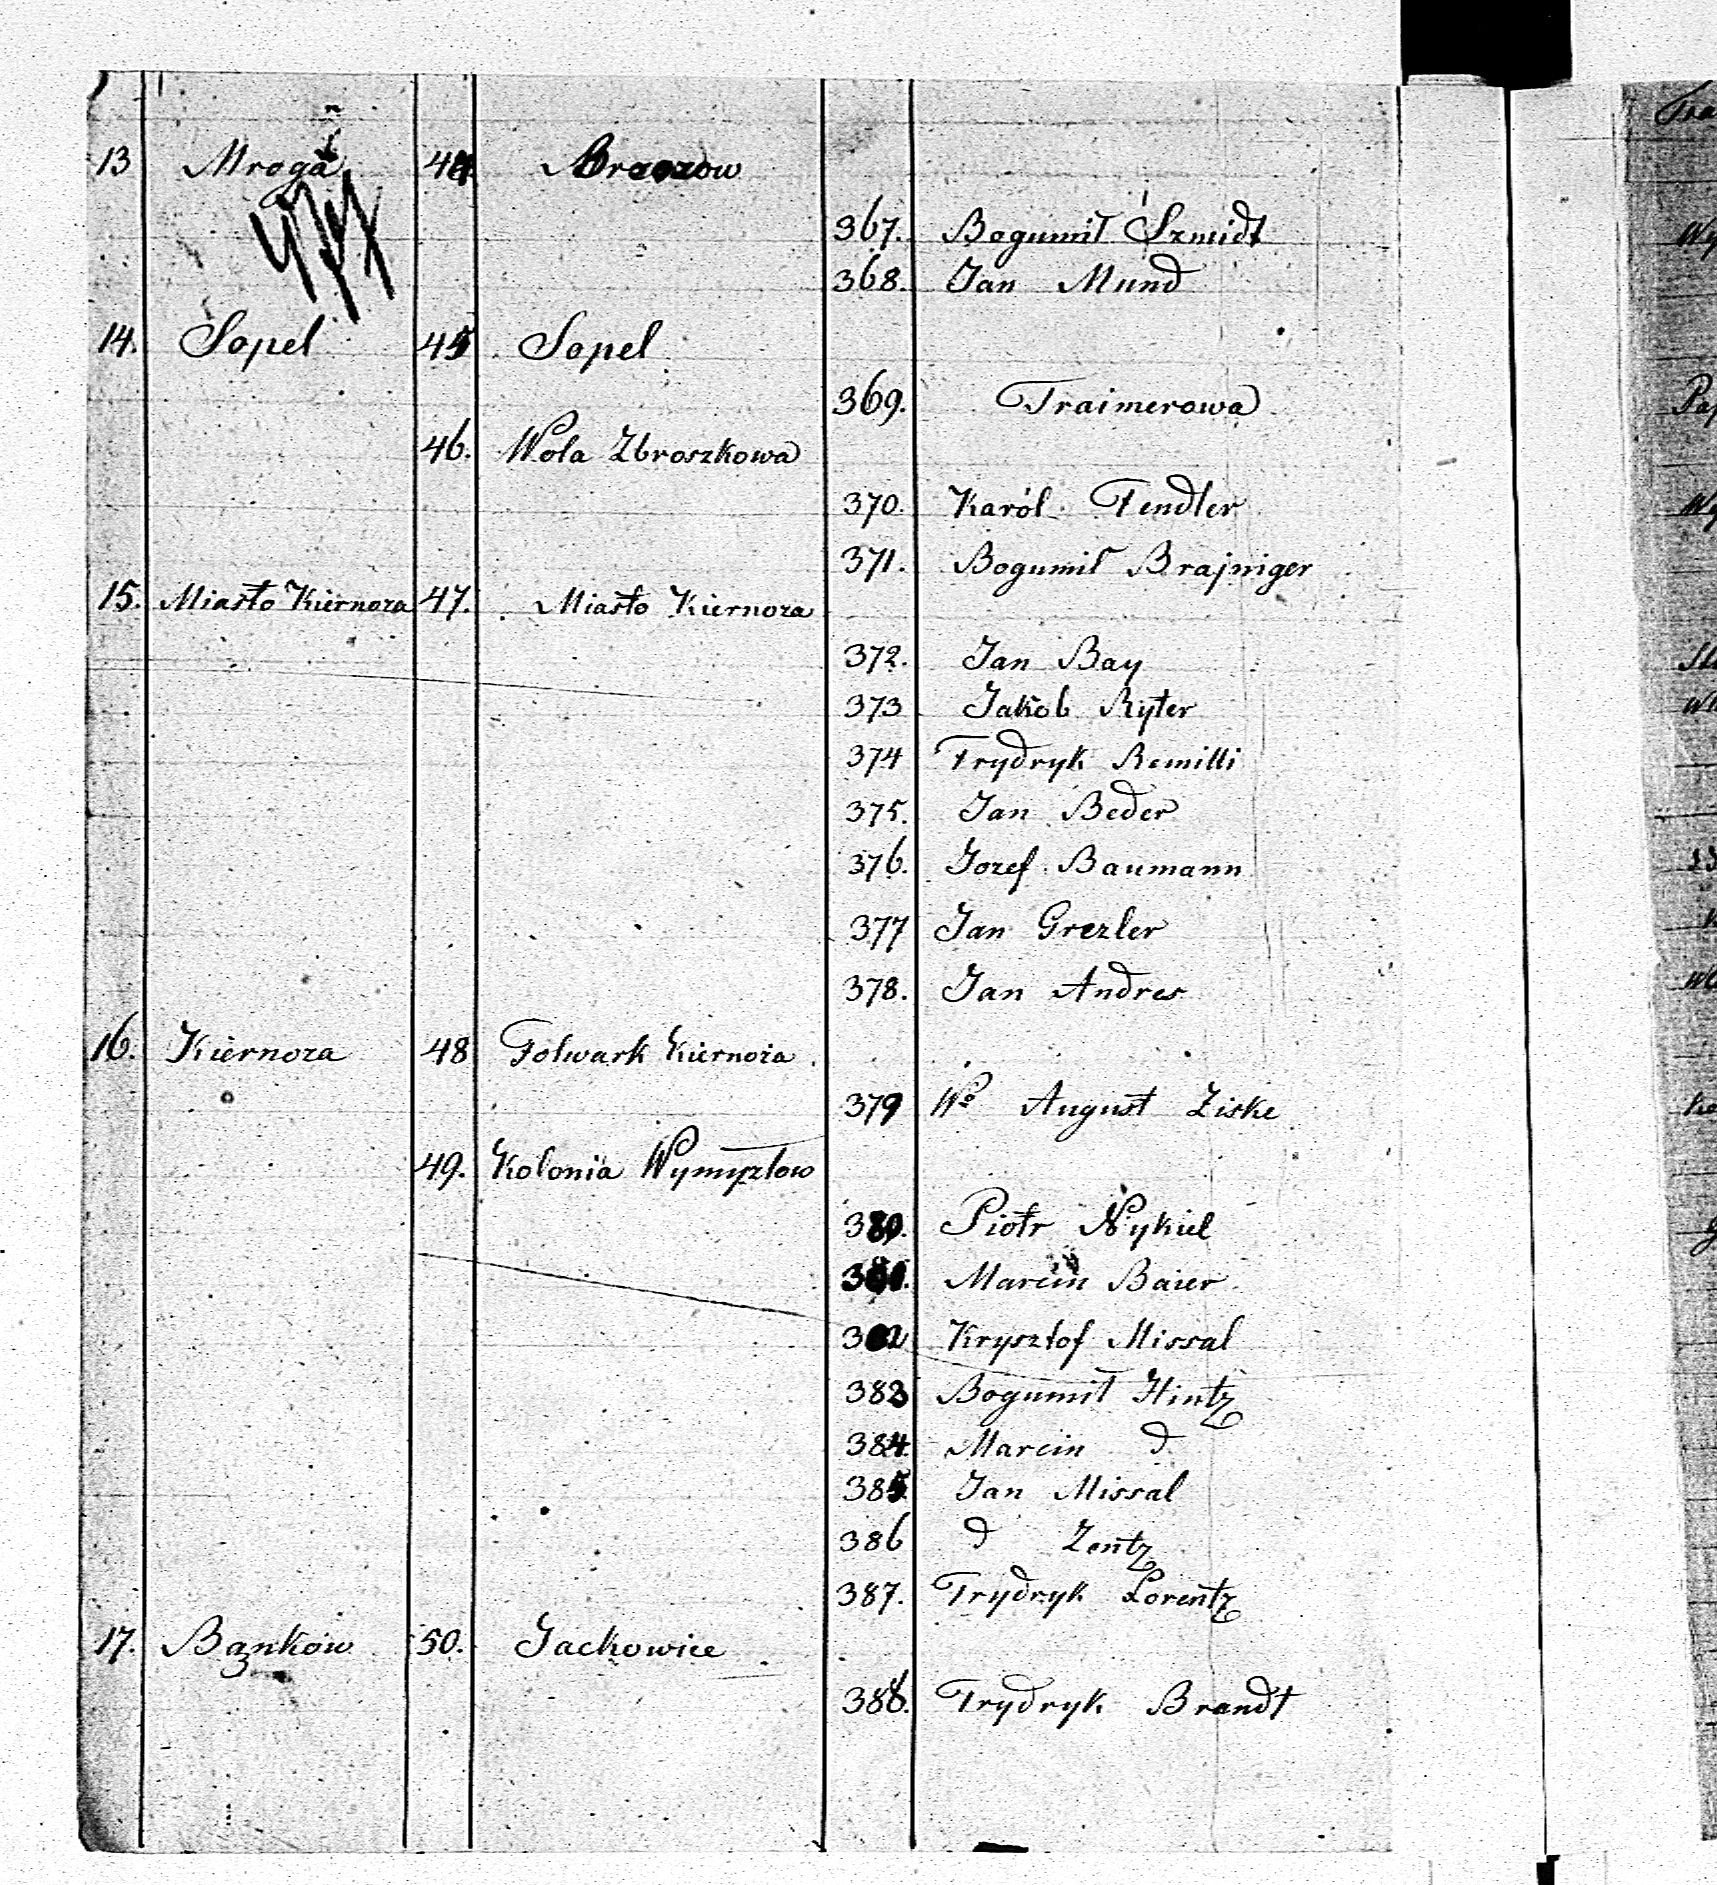 13 Mroga 44 Brzozow
367. Bogumił Szmidt
368. Jan Mund
14. Sopel 45 Sopel
369. Fraimerowa
46. Wola Zbroszkowa
370. Karól Fendler
371. Bogumił Brajniger
15. Miasto Kiernoza 47. Miasto Kiernoza
372. Jan Bay
373 Jakób Ryter
374 Frydryk Remilli
375. Jan Beder
376. Jozef Baumann
377 Jan Grezler
378. Jan Andres
16. Kiernoza 48 Folwark Kiernoża
379 Wº August Ziske
49. Kolonia Wymyzłow
380. Piotr Nykiel
381. Marcin Baier
382 Krysztof Missal
383 Bogumił Hintz
384. Marcin d
385. Jan Missal
386 d Zentz
387. Frydryk Lorentz
17. Bąnków 50. Jackowice
388. Frydryk Brandt